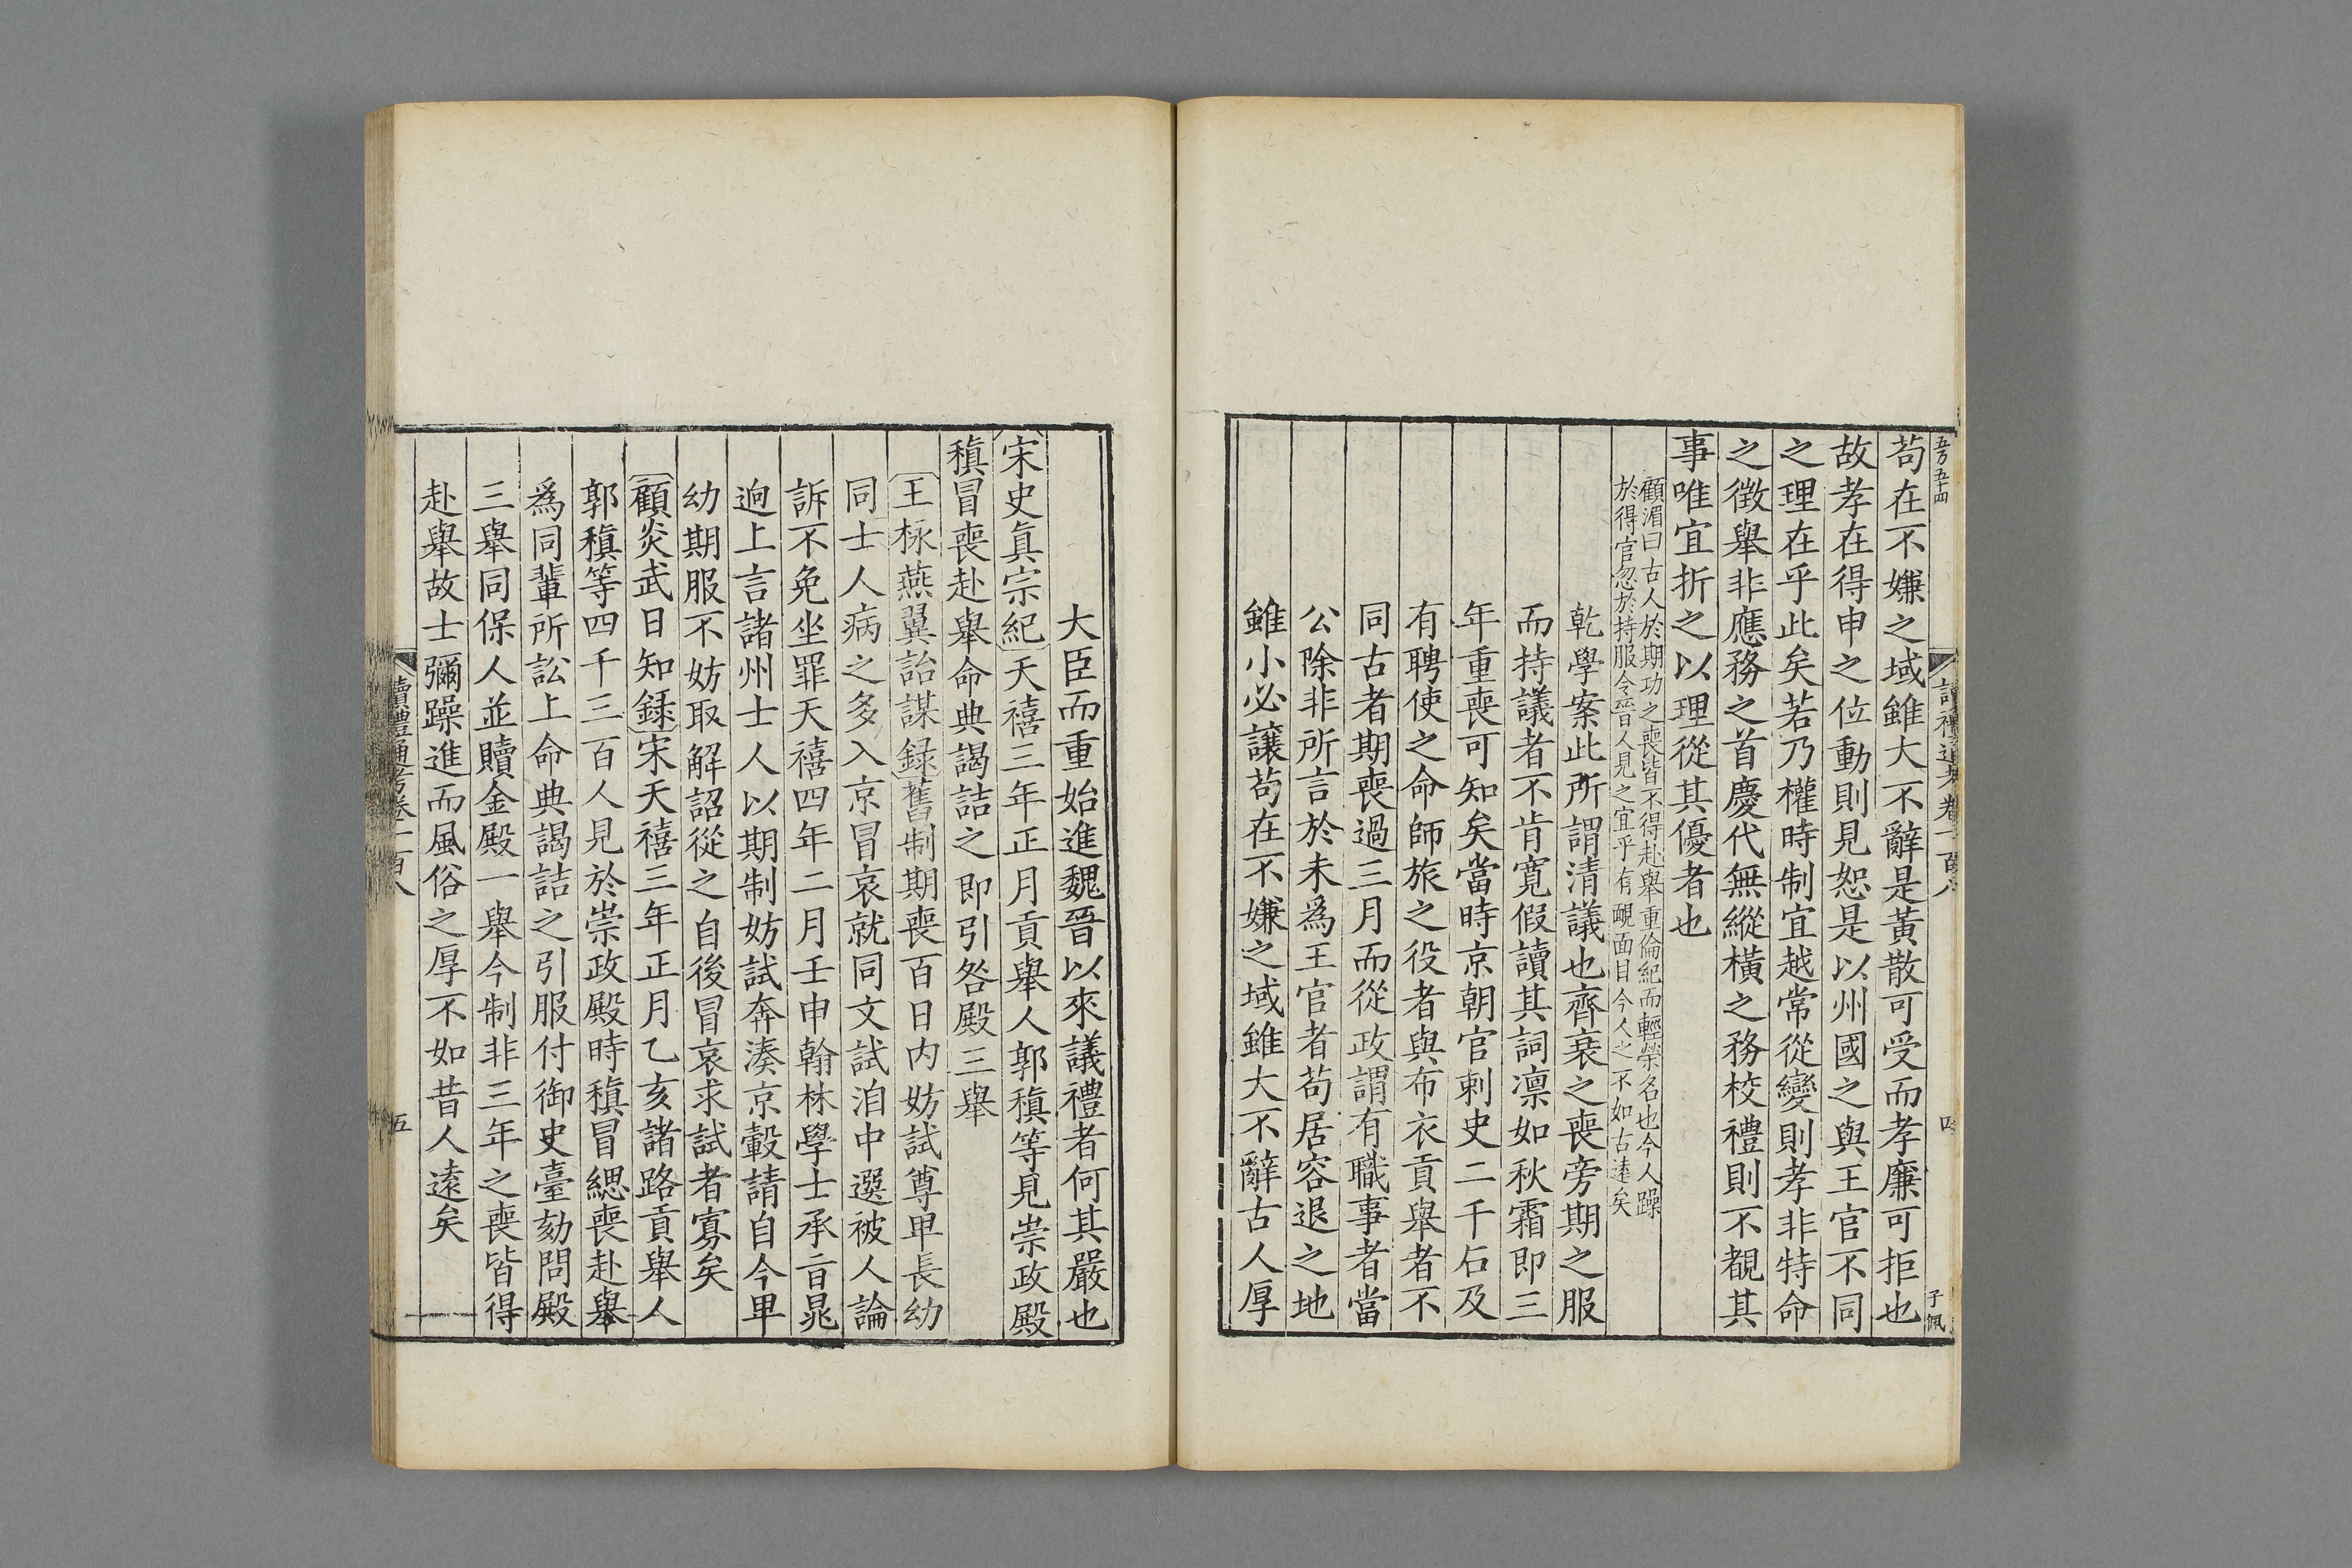 苟在不嫌之域雖大不辭是黃散可受而孝廉可拒也
故孝在得申之位動則見恕是以州國之與王官不同
之理在乎此矣若乃權時制宜越常從變則孝非特命
之徵舉非應務之首慶代無縱橫之務校禮則不覩其
事唯宜折之以理從其優者也
顧湄曰古人於期功之喪皆不得赴舉重倫紀而輕榮名也今人躁
於得官忽於持服令晉人見之宜乎有靦面目今人之不如古遠矣
乾學案此所謂清議也齊衰之喪旁期之服
而持議者不肯寬假讀其詞凛如秋霜即三
年重喪可知矣當時京朝官刺史二千石及
有聘使之命師旅之役者與布衣貢舉者不
同古者期喪過三月而從政謂有職事者當
公除非所言於未爲王官者苟居容退之地
雖小必讓苟在不嫌之域雖大不辭古人厚
大臣而重始進魏晉以來議禮者何其嚴也
宋史眞宗紀天禧三年正月貢舉人郭稹等見崇政殿
稹冒喪赴舉命典謁詰之即引咎殿三舉
王栐燕翼詒謀録舊制期喪百日内妨試尊卑長幼
同士人病之多入京冒哀就同文試洎中選被人論
訴不免坐罪天禧四年二月壬申翰林學士承旨晁
迥上言諸州士人以期制妨試奔湊京轂請自今卑
幼期服不妨取解詔從之自後冒哀求試者寡矣
顧炎武日知録宋天禧三年正月乙亥諸路貢舉人
郭稹等四千三百人見於崇政殿時稹冒緦喪赴舉
爲同輩所訟上命典謁詰之引服付御史臺劾問殿
三舉同保人並贖金殿一舉今制非三年之喪皆得
赴舉故士彌躁進而風俗之厚不如昔人遠矣
讀禮通考卷一百八
五